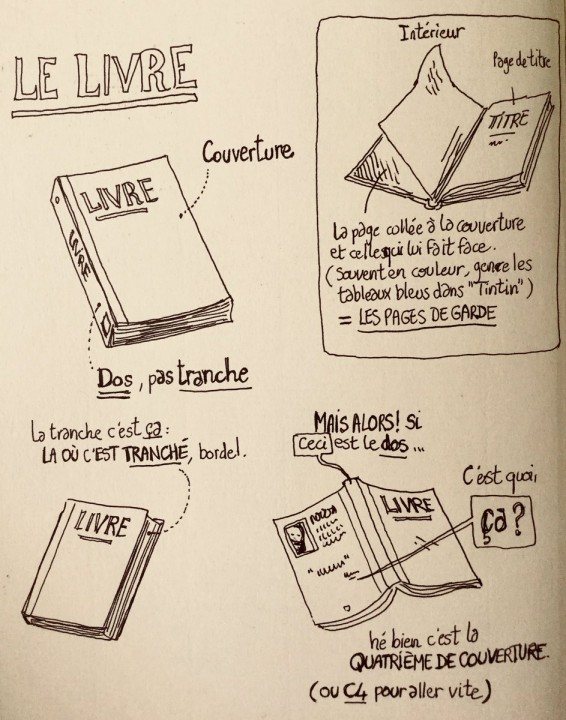 LE LIVRE
Couverture
LIVRE
LIVRE
Dos, pas tranche
Intérieur
Page de titre
TITRE
La page collée à la couverture
et celle qui lui fait face.
(Souvent en couleur, genre les
tableaux bleus dans "Tintin")
= LES PAGES DE GARDE
la tranche c'est ça :
LA OÙ C'EST TRANCHÉ, bordel.
LIVRE
MAIS ALORS! SI
Ceci est le dos ...
C'est quoi,
ça ?
LIVRE
hé bien c'est la
QUATRIÈME DE COUVERTURE.
(ou C4 pour aller vite)